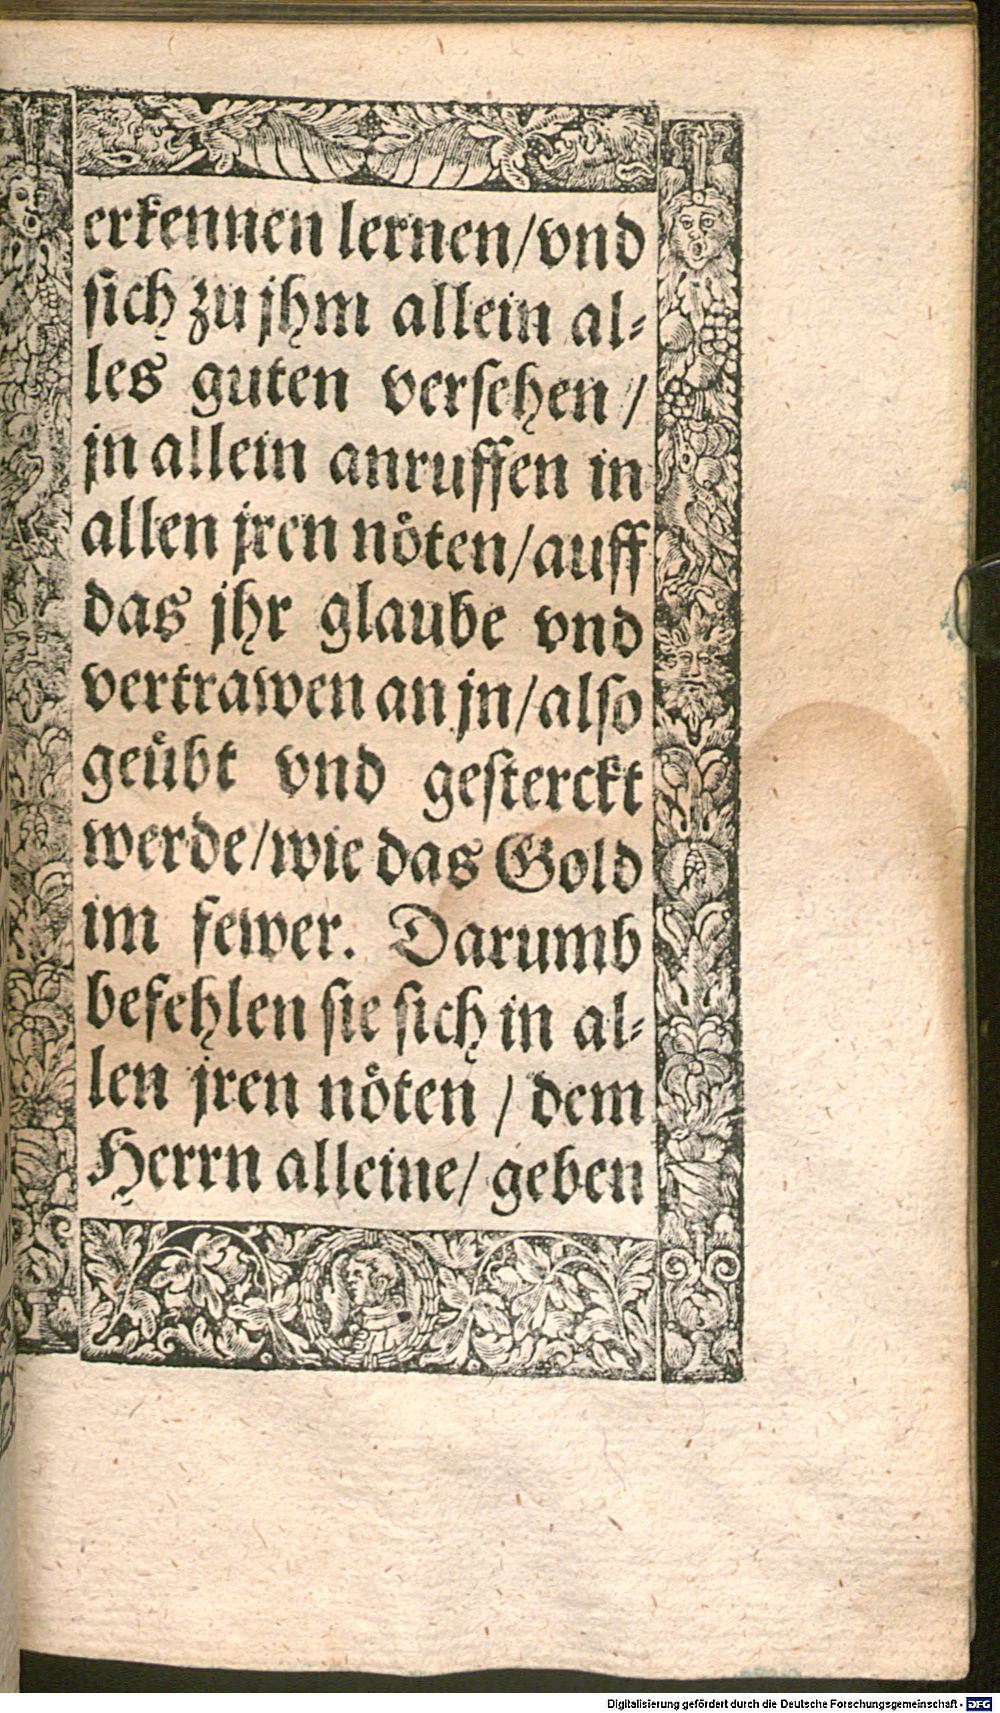 erkennen lernen/vnd
sich zu jhm allein al⸗
les guten versehen/
jn allein anruffen in
allen jren nöten/auff
das jhr glaube vnd
vertrawen an jn/also
geübt vnd gesterckt
werde/wie das Gold
im fewer. Darumb
befehlen sie sich in al⸗
len jren nöten / dem
Herrn alleine/ geben
Digitalisierung gefördert durch die Deutsche Forschungsgemeinschaft - DFG